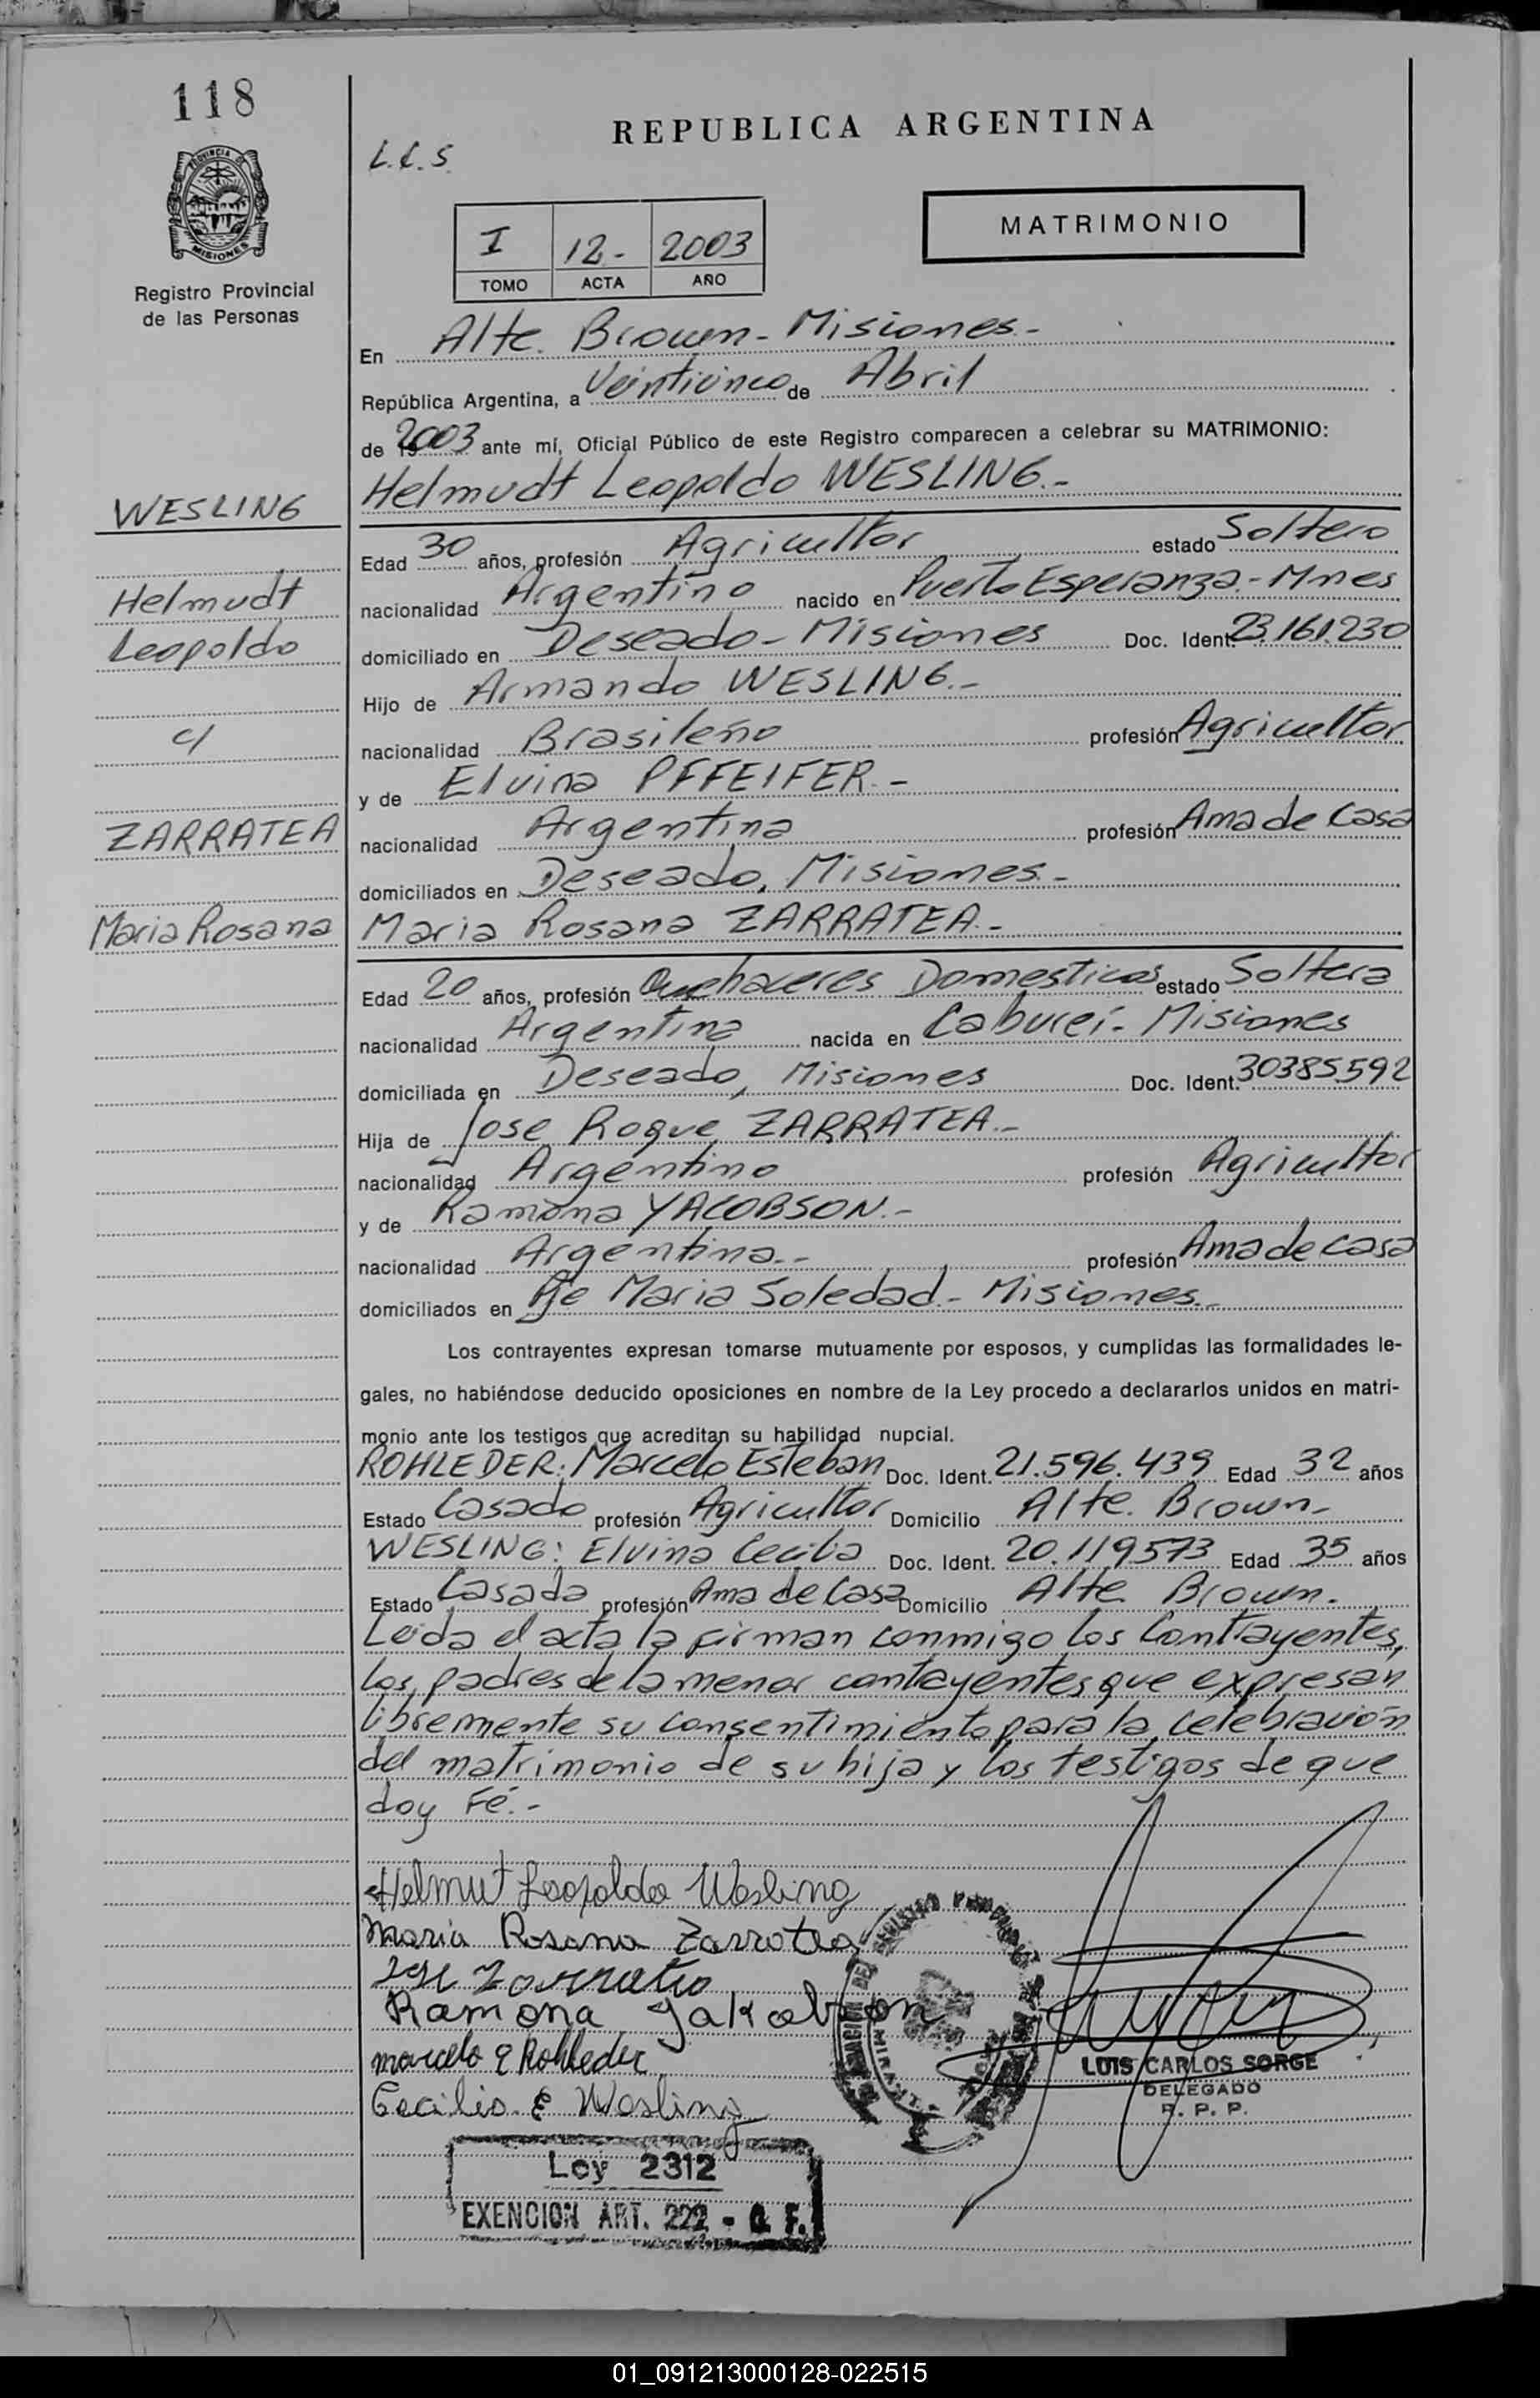 118
PROVINCIA DE
MISIONES
Registro Provincial
de las Personas
REPUBLICA ARGENTINA
L.C.S.
I 12.- 2003
TOMO ACTA AÑO
MATRIMONIO
En Alte. Brown - Misiones.-
República Argentina, a Veinticinco de Abril
de 2003 ante mí, Oficial Público de este Registro comparecen a celebrar su MATRIMONIO:
Helmudt Leopoldo WESLING.-
WESLING
Helmudt
Leopoldo
c/
ZARRATEA
Maria Rosana
Edad 30 años, profesión Agricultor estado Soltero
nacionalidad Argentino nacido en Puerto Esperanza.- Mnes
domiciliado en Deseado - Misiones Doc. Ident. 23.161.230
Hijo de Armando WESLING.-
nacionalidad Brasileño profesión Agricultor
y de Elvina PFFEIFER.-
nacionalidad Argentina profesión Ama de Casa
domiciliados en Deseado, Misiones.-
Maria Rosana ZARRATEA.-
Edad 20 años, profesión Quehaceres Domesticos estado Soltera
nacionalidad Argentina nacida en Caburei - Misiones
domiciliada en Deseado, Misiones Doc. Ident. 30385592
Hija de Jose Roque ZARRATEA.-
nacionalidad Argentino profesión Agricultor
y de Ramona YACOBSON.-
nacionalidad Argentina.- profesión Ama de Casa
domiciliados en Pje Maria Soledad - Misiones.-
Los contrayentes expresan tomarse mutuamente por esposos, y cumplidas las formalidades le-
gales, no habiéndose deducido oposiciones en nombre de la Ley procedo a declararlos unidos en matri-
monio ante los testigos que acreditan su habilidad nupcial.
ROHLEDER: Marcelo Esteban Doc. Ident. 21.596.439 Edad 32 años
Estado Casado profesión Agricultor Domicilio Alte. Brown.-
WESLING: Elvina Cecilia Doc. Ident. 20.119573 Edad 35 años
Estado Casada profesión Ama de Casa Domicilio Alte. Brown.
Leida el acta la firman conmigo los Contrayentes,
los padres de la menor contrayentes que expresan
libremente su consentimiento para la celebración
del matrimonio de su hija y los testigos de que
doy Fé.-
Helmut Leopoldo Wesling
Maria Rosana Zarratea
Jose Zarratea
Ramona Jakobson
Marcelo E Rohleder
Cecilia E Wesling
LUIS CARLOS SORGE
DELEGADO
R. P. P.
Ley 2312
EXENCION ART. 222 - C. F.
01_091213000128-022515